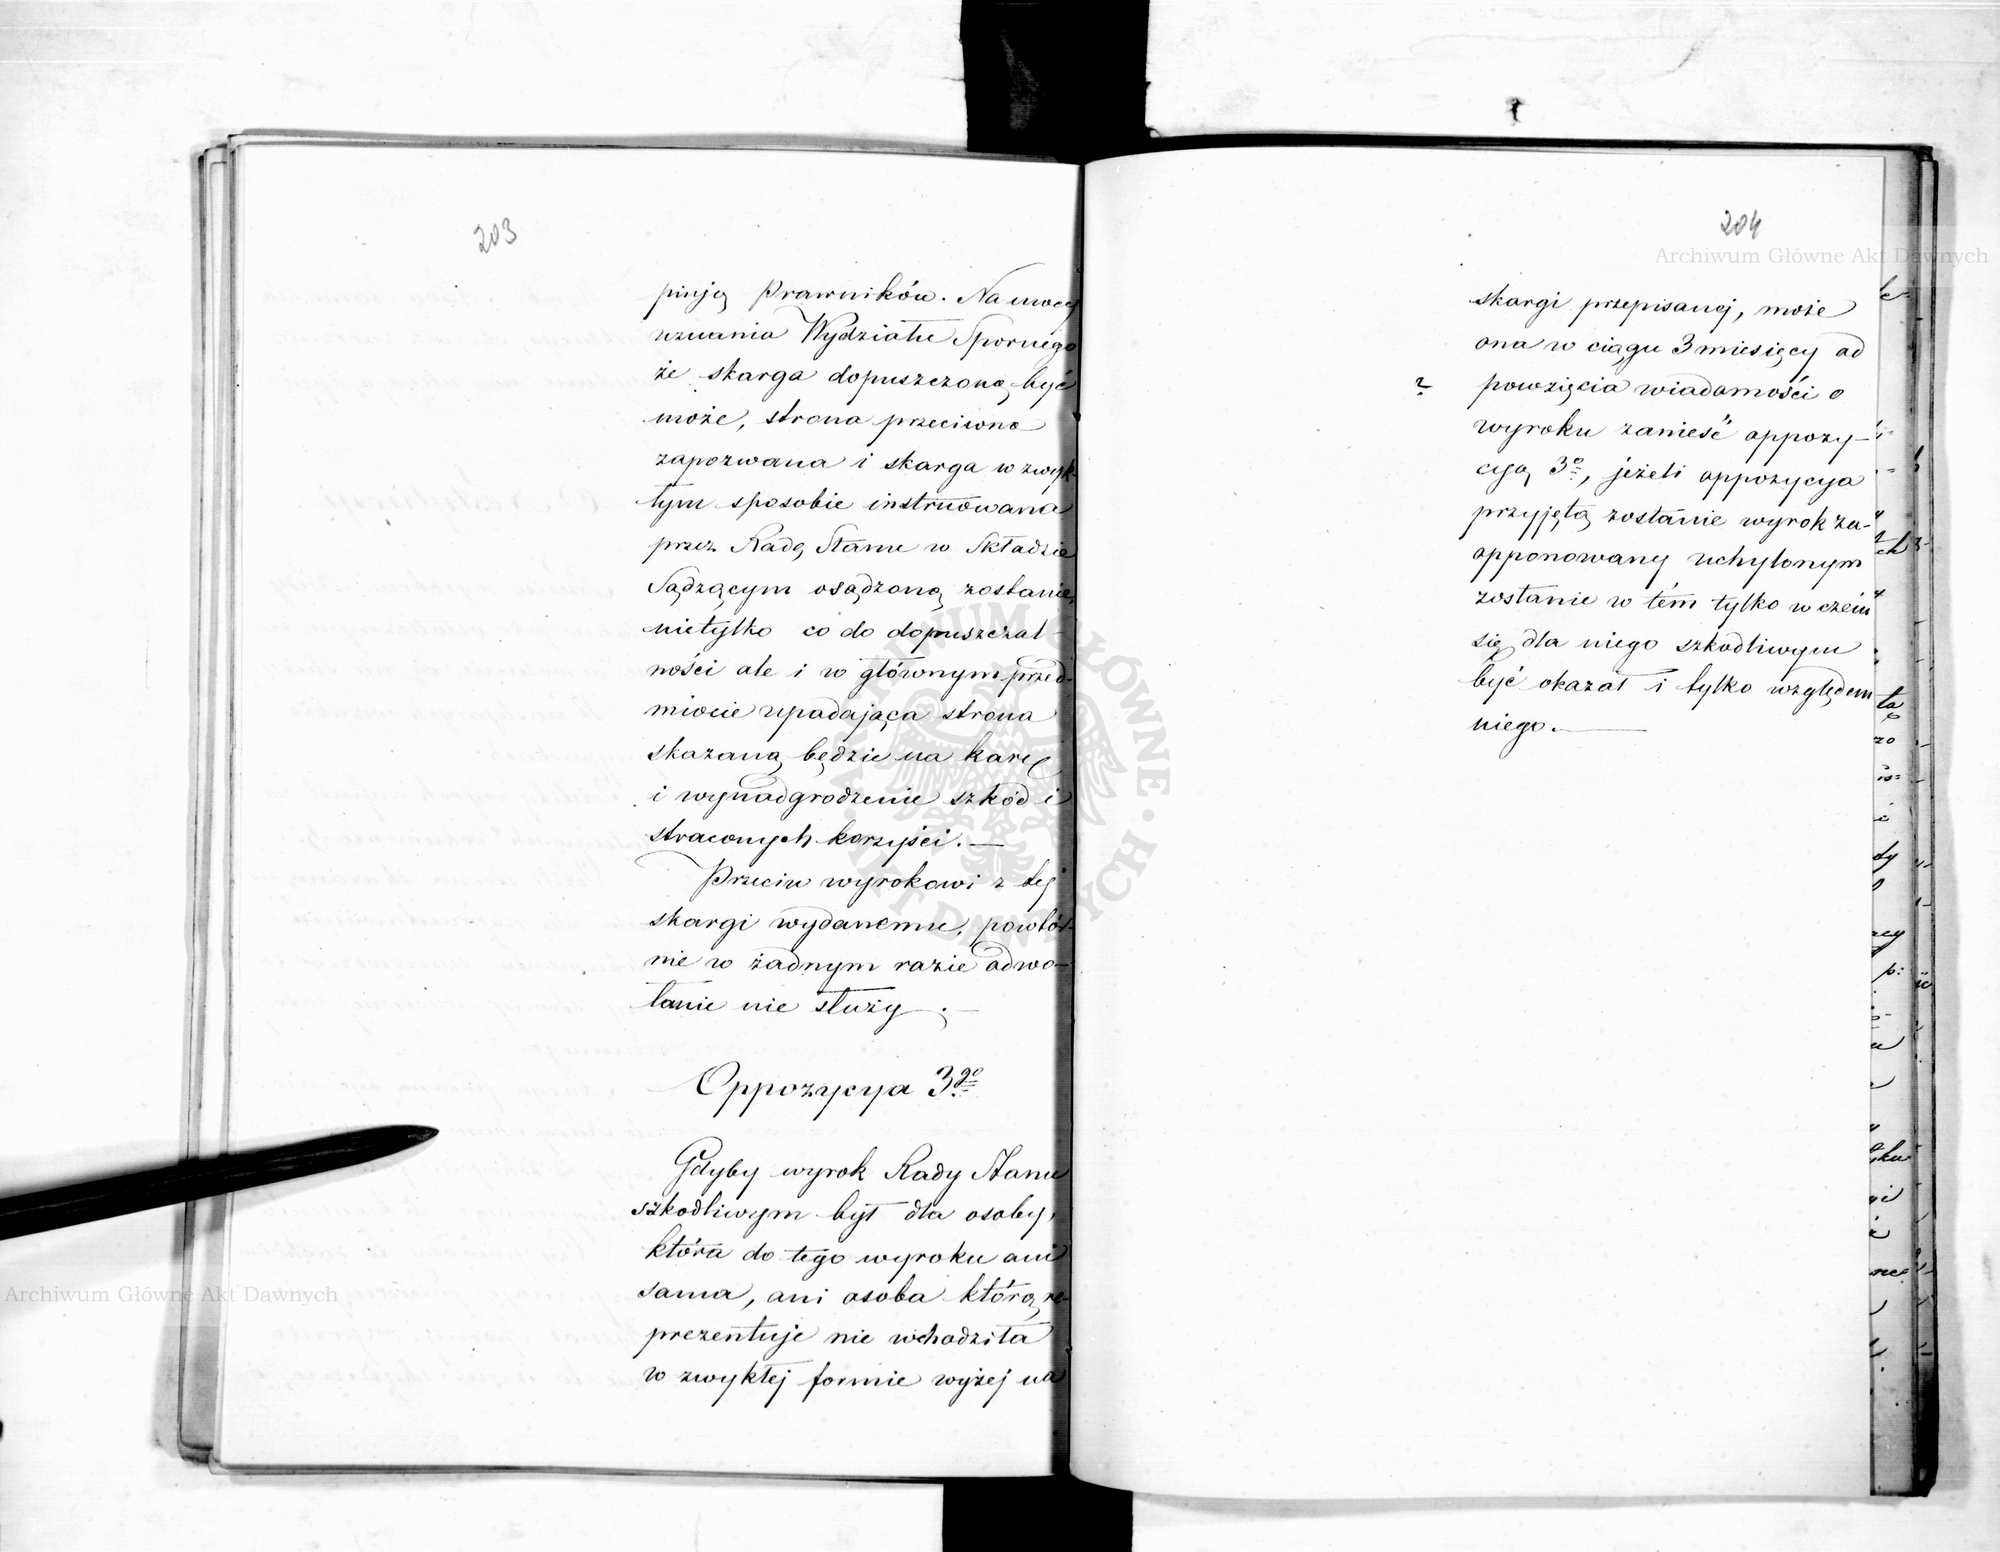 203
piiję Prawników. Na mocy
uznania Wydziału Spornego
że skarga dopuszczoną być
może, strona przeciwna
zapozwana i skarga w zwyk-
łym sposobie instruowana
przez Radę Stanu w Składzie
Sądzącym osądzoną zostanie,
nietylko co do dopuszczal-
ności ale i w głównym przed-
miocie upadająca strona
skazaną będzie na karę
i wynadgrodzenie szkód i
straconych korzyści. —
Przeciw wyrokowi z tej
skargi wydanemu, powtór-
nie w żadnym razie odwo-
łanie nie służy. —
Oppozycya 3go
Gdyby wyrok Rady Stanu
szkodliwym był dla osoby,
która do tego wyroku ani
sama, ani osoba którą re-
prezentuje nie wchodziła
w zwykłej formie wyżej na
204
skargi przepisanej, może
ona w ciągu 3 miesięcy od
powzięcia wiadomości o
wyroku zanieść oppozy-
cyą 3o, jeżeli oppozycya
przyjętą zostanie wyrok za-
opponowany uchylonym
zostanie w tém tylko w czém
się dla niego szkodliwym
być okazał i tylko względem
niego. —
Archiwum Główne Akt Dawnych
Archiwum Główne Akt Dawnych
ARCHIWUM GŁÓWNE AKT DAWNYCH